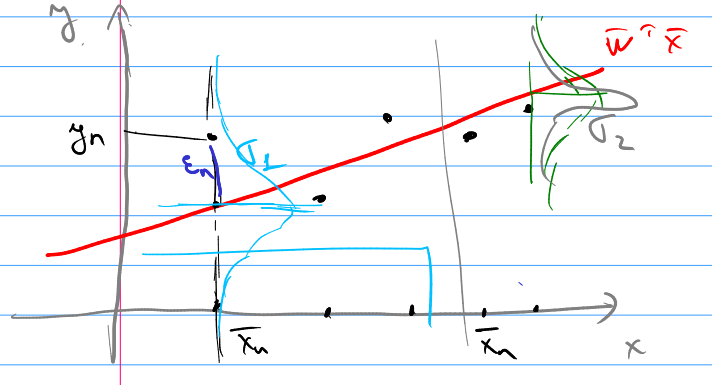 y
w̄ᵀ x̄
yₙ
εₙ
σ₁
σ₂
x̄ₙ
x̄ₙ
x